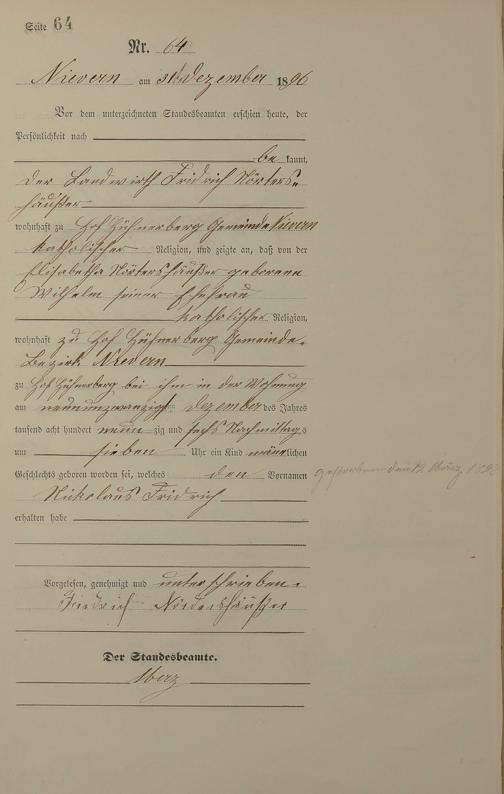 Seite 64
Nr. 64
Nievern am 31. Dezember 1896
Vor dem unterzeichneten Standesbeamten erschien heute, der
Persönlichkeit nach
be kannt,
der Landwirth Fridrich Nörters-
häußer
wohnhaft zu Hof Hühnerberg Gemeinde Nievern
katholischer Religion, und zeigte an, daß von der
Elisabetha Nörtershäußer geborene
Wilhelm seiner Ehefrau
katholischer Religion,
wohnhaft zu Hof Hühnerberg Gemeinde-
Bezirk Nievern
zu Hof Hühnerberg bei ihm in der Wohnung
am neunundzwanzigst Dezember des Jahres
tausend acht hundert neun zig und sechs Nachmittags
um sieben Uhr ein Kind männlichen
Geschlechts geboren worden sei, welches den Vornamen
Nickolaus Fridrich
erhalten habe
gestorben den 12 März
Vorgelesen, genehmigt und unterschrieben.
Friedrich Nörtershäußer
Der Standesbeamte.